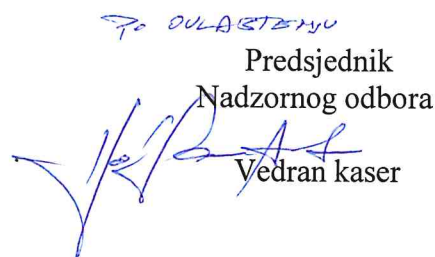 Po OVLAŠTENJU
Predsjednik
Nadzornog odbora
Vedran kaser